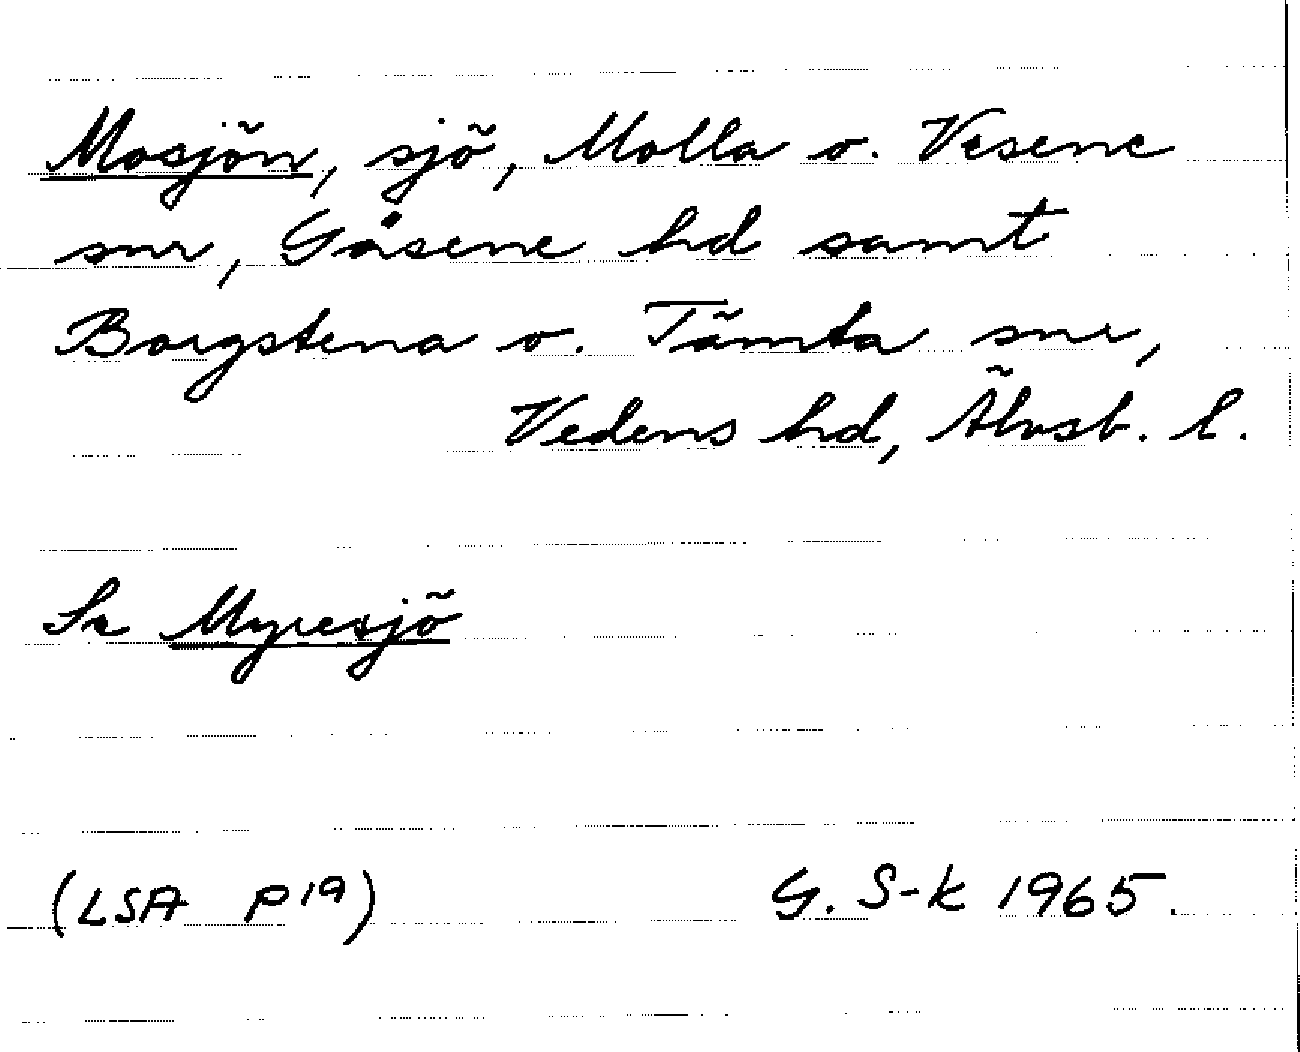 Mosjön, sjö, Molla o. Vesene
snr, Gäsene hd samt
Borgstena o. Tämta snr,
Vedens hd, Älvsb. l.
Se Myresjö
(LSA P19)
G. S-k 1965.